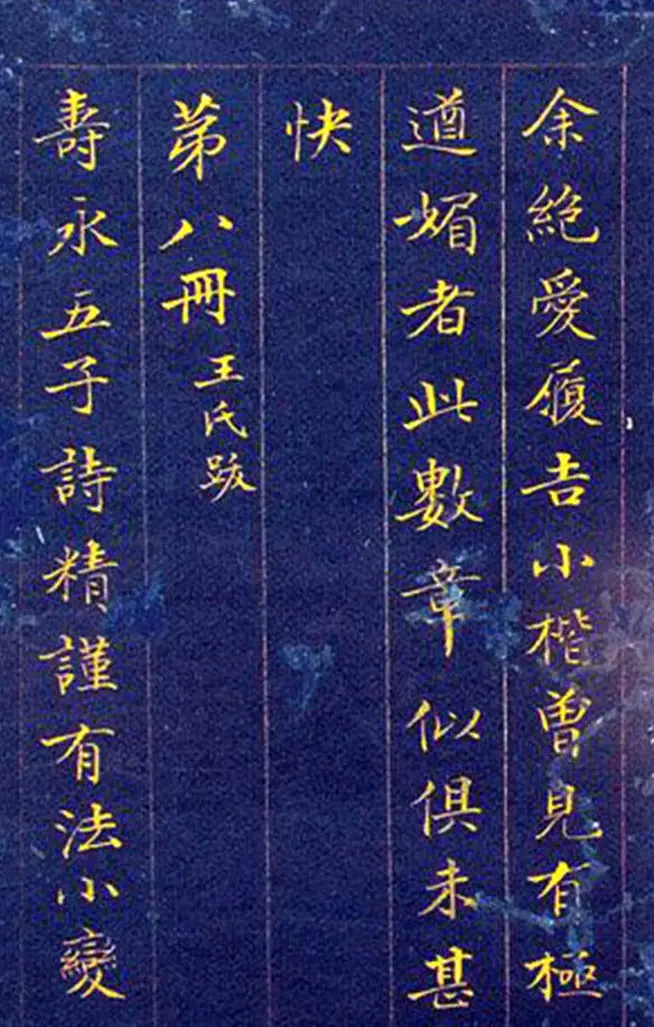 余絶愛履吉小楷曽見有極
遒媚者此數章似俱未甚
快
苐八冊王氏跋
壽永五子詩精謹有法小變